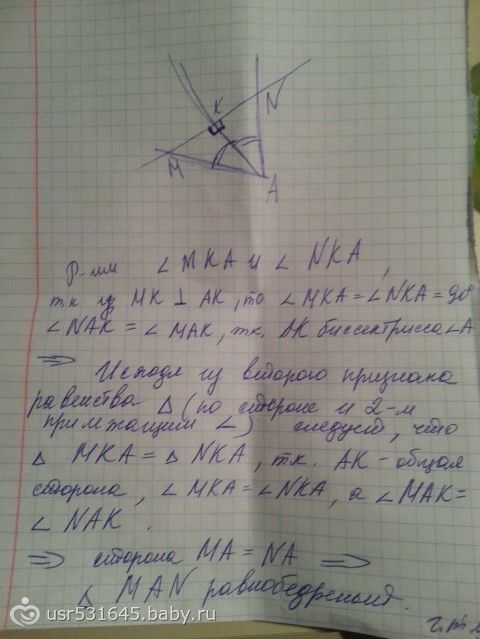 K
N
M
A
Р-им ∠ MKA и ∠ NKA,
т.к из MK ⊥ AK, то ∠MKA=∠NKA=90
∠NAK = ∠MAK, т.к. AK биссектрисса ∠A
⇒ Исходя из второго признака
равенства Δ (по стороне и 2-м
прилежащим ∠) следует, что
Δ MKA = Δ NKA, т.к. AK - общая
сторона, ∠MKA=∠NKA, а ∠MAK=
∠ NAK.
⇒ сторона MA = NA ⇒
Δ MAN равнобедренный.
ч.т.
usr531645.baby.ru